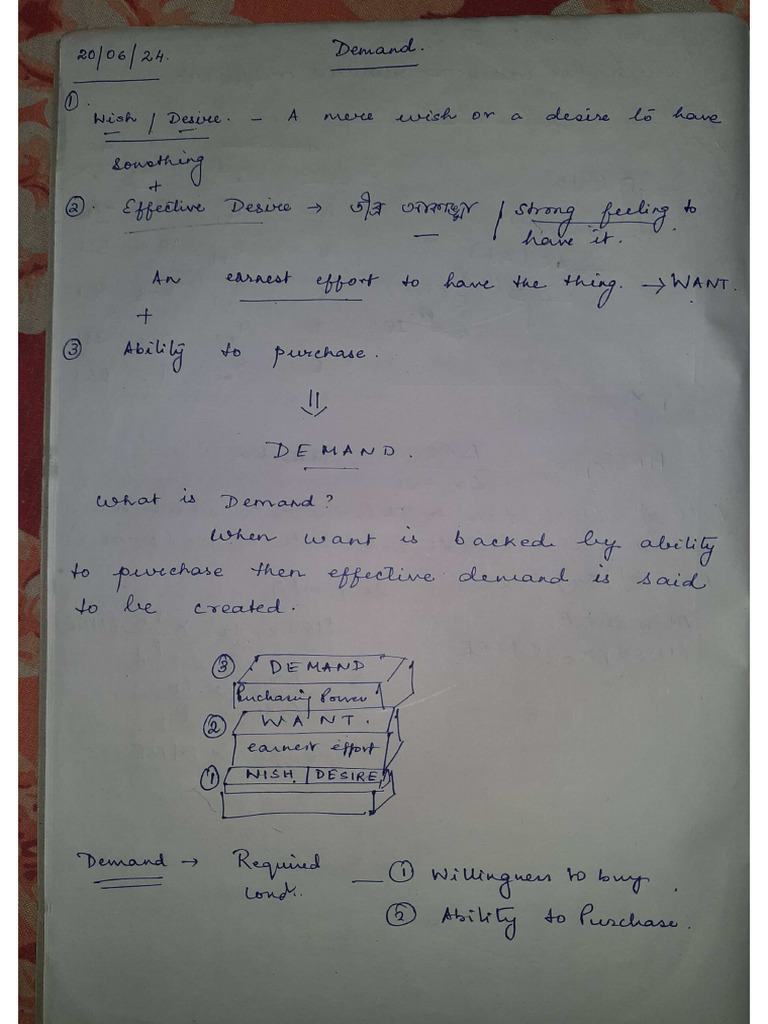 20/06/24. Demand.
①.
Wish / Desire. – A mere wish or a desire to have
Something
+
②. Effective Desire → তীব্র আকাঙ্ক্ষা / Strong feeling to
have it.
An earnest effort to have the thing. → WANT.
+
③ Ability to purchase.
⇓
DEMAND.
What is Demand?
When want is backed by ability
to purchase then effective demand is said
to be created.
③ DEMAND
Puchasing Power
② WANT.
earnest effort
① WISH | DESIRE
Demand → Required — ① Willingness to buy.
Cond.
② Ability to Purchase.